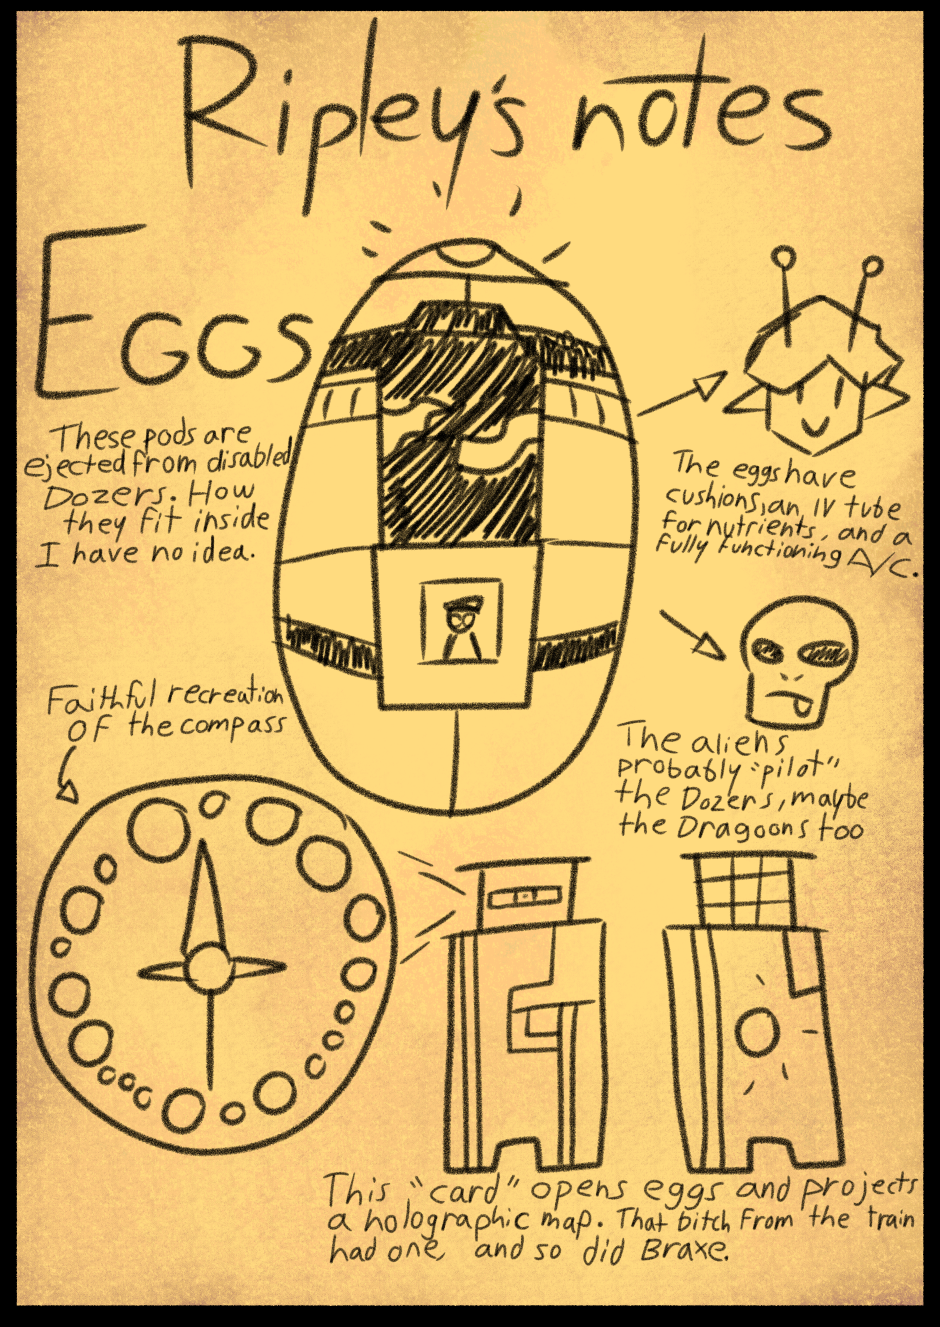 Ripley's notes
EGGS
These pods are
ejected from disabled
Dozers. How
they fit inside
I have no idea.
The eggs have
cushions, an IV tube
for nutrients, and a
fully functioning A/C.
The aliens
probably "pilot"
the Dozers, maybe
the Dragoons too
Faithful recreation
OF the compass
This "card" opens eggs and projects
a holographic map. That bitch from the train
had one, and so did Braxe.